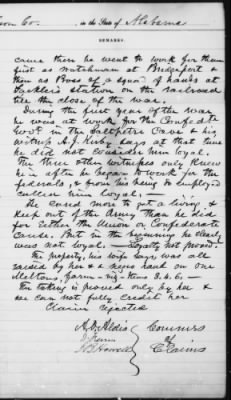 son Co. , in the State of Alabama
REMARKS.
came then he went to work for them
first as watchman at Bridgeport &
then as Boss of a squad of hands at
station on the railroad
till the close of the war.
During the first year of the war
he was at work for the Confedte
Govt. in the Saltpetre Cave & his
witness A. J. Kirby says at that time
did not consider him loyal.
The three other witnesses only knew
him after he began to work for the
federals, & from his being so employed
called him loyal. —
He cared more to get a living &
keep out of the Army than he did
for either the Union or Confederate
cause. But in the beginning he clearly
was not loyal. — Loyalty not proved.
The property, his wife says was all
raised by her & a negro hand on one
farm —
The taking is proved only by her &
we can not fully credit her
Claim rejected
A. O. Aldis
J. B. Howell
Commrs
of
Claims